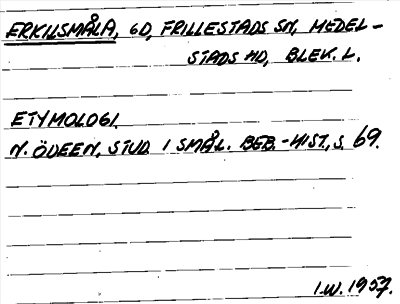 ERKILSMÅLA, GD, FRILLESTADS SN, MEDEL-
STADS HD, BLEK. L.
ETYMOLOGI.
N. ÖDEEN, STUD. I SMÅL. BEB.-HIST., S. 69.
I.W. 1957.